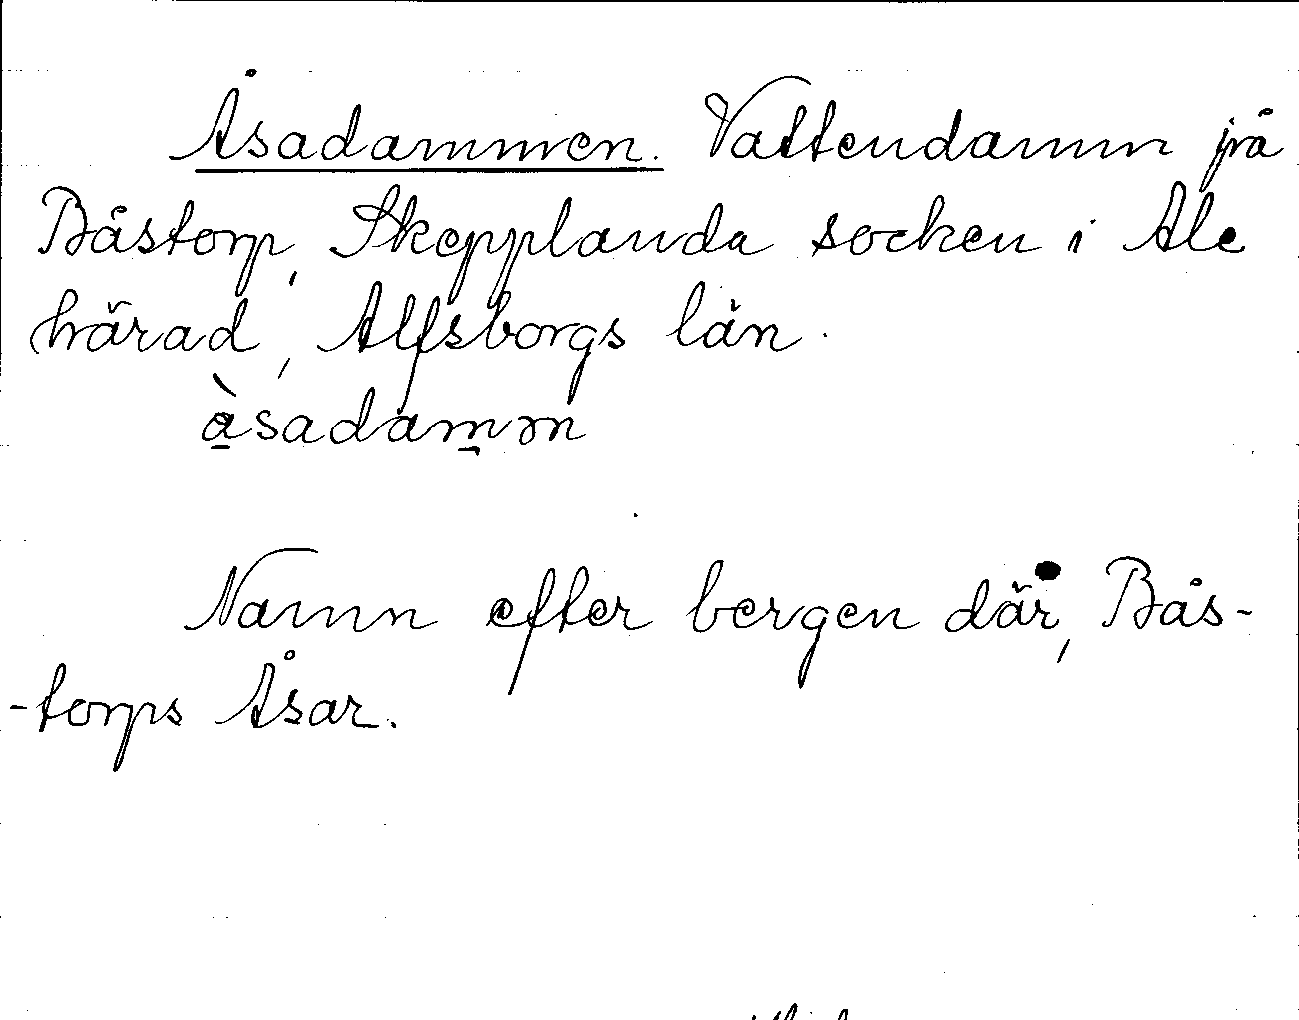 Åsadammen. Vattendamm på
Båstorp, Skepplanda socken i Ale
härad, Alfsborgs län.
àsadamm
Namn efter bergen där, Bås-
-torps Åsar.